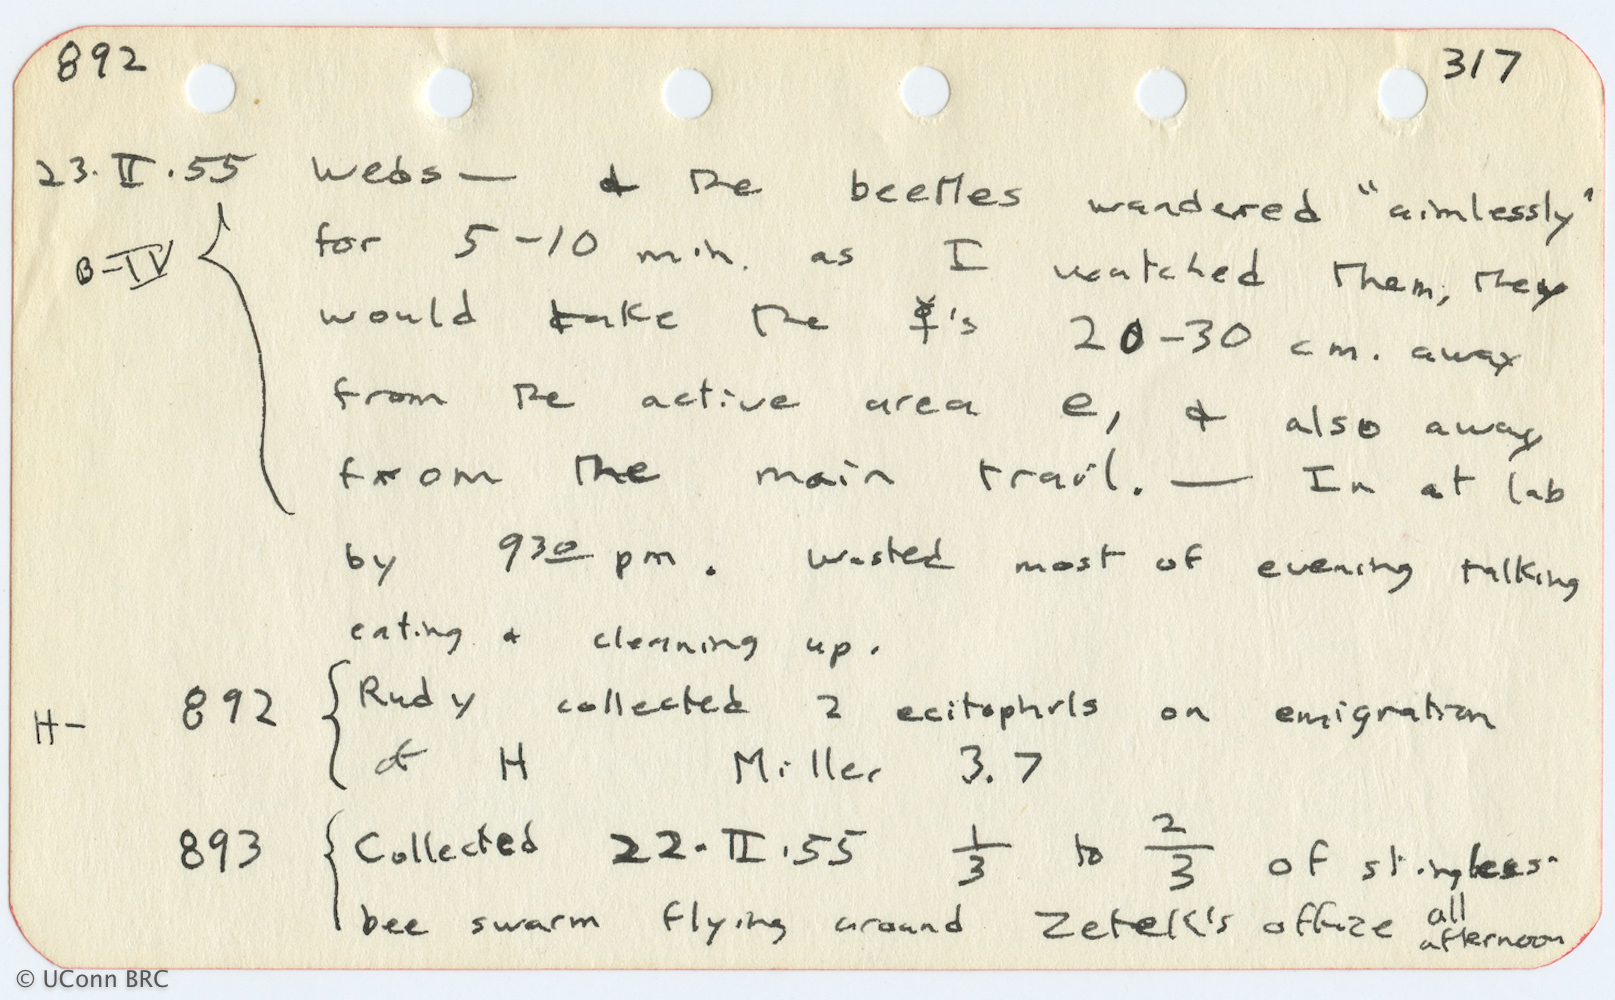 892 317
23.II.55 webs — & the beetles wandered "aimlessly"
for 5-10 min. as I watched them, they
B-IV
would take the ☿'s 20-30 cm. away
from the active area e, & also away
from the main trail. — In at lab
by 930 pm. Wasted most of evening talking
eating & cleaning up.
H- 892 Rudy collected 2 ecitophils on emigration
of H Miller 3.7
893 Collected 22.II.55 1/3 to 2/3 of stingless
bee swarm flying around Zetek's office all
afternoon
© UConn BRC